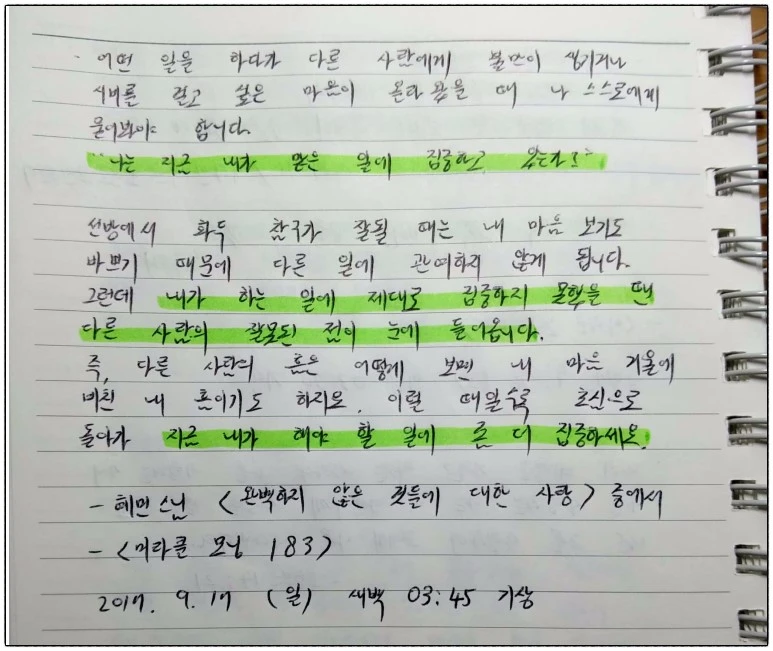 · 어떤 일을 하다가 다른 사람에게 불만이 생기거나
시비를 걸고 싶은 마음이 올라 왔을 때 나 스스로에게
물어봐야 합니다.
"나는 지금 내가 맡은 일에 집중하고 있는가?"
선방에서 화두 참구가 잘될 때는 내 마음 보기도
바쁘기 때문에 다른 일에 관여하지 않게 됩니다.
그런데 내가 하는 일에 제대로 집중하지 못했을 땐
다른 사람의 잘못된 점이 눈에 들어옵니다.
즉, 다른 사람의 흠은 어떻게 보면 내 마음 거울에
비친 내 흠이기도 하지요. 이럴 때일수록 초심으로
돌아가 지금 내가 해야 할 일에 좀 더 집중하세요.
- 혜민스님 <완벽하지 않은 것들에 대한 사랑> 중에서
- <미라클 모닝 183>
2017. 9. 17 (일) 새벽 03:45 기상